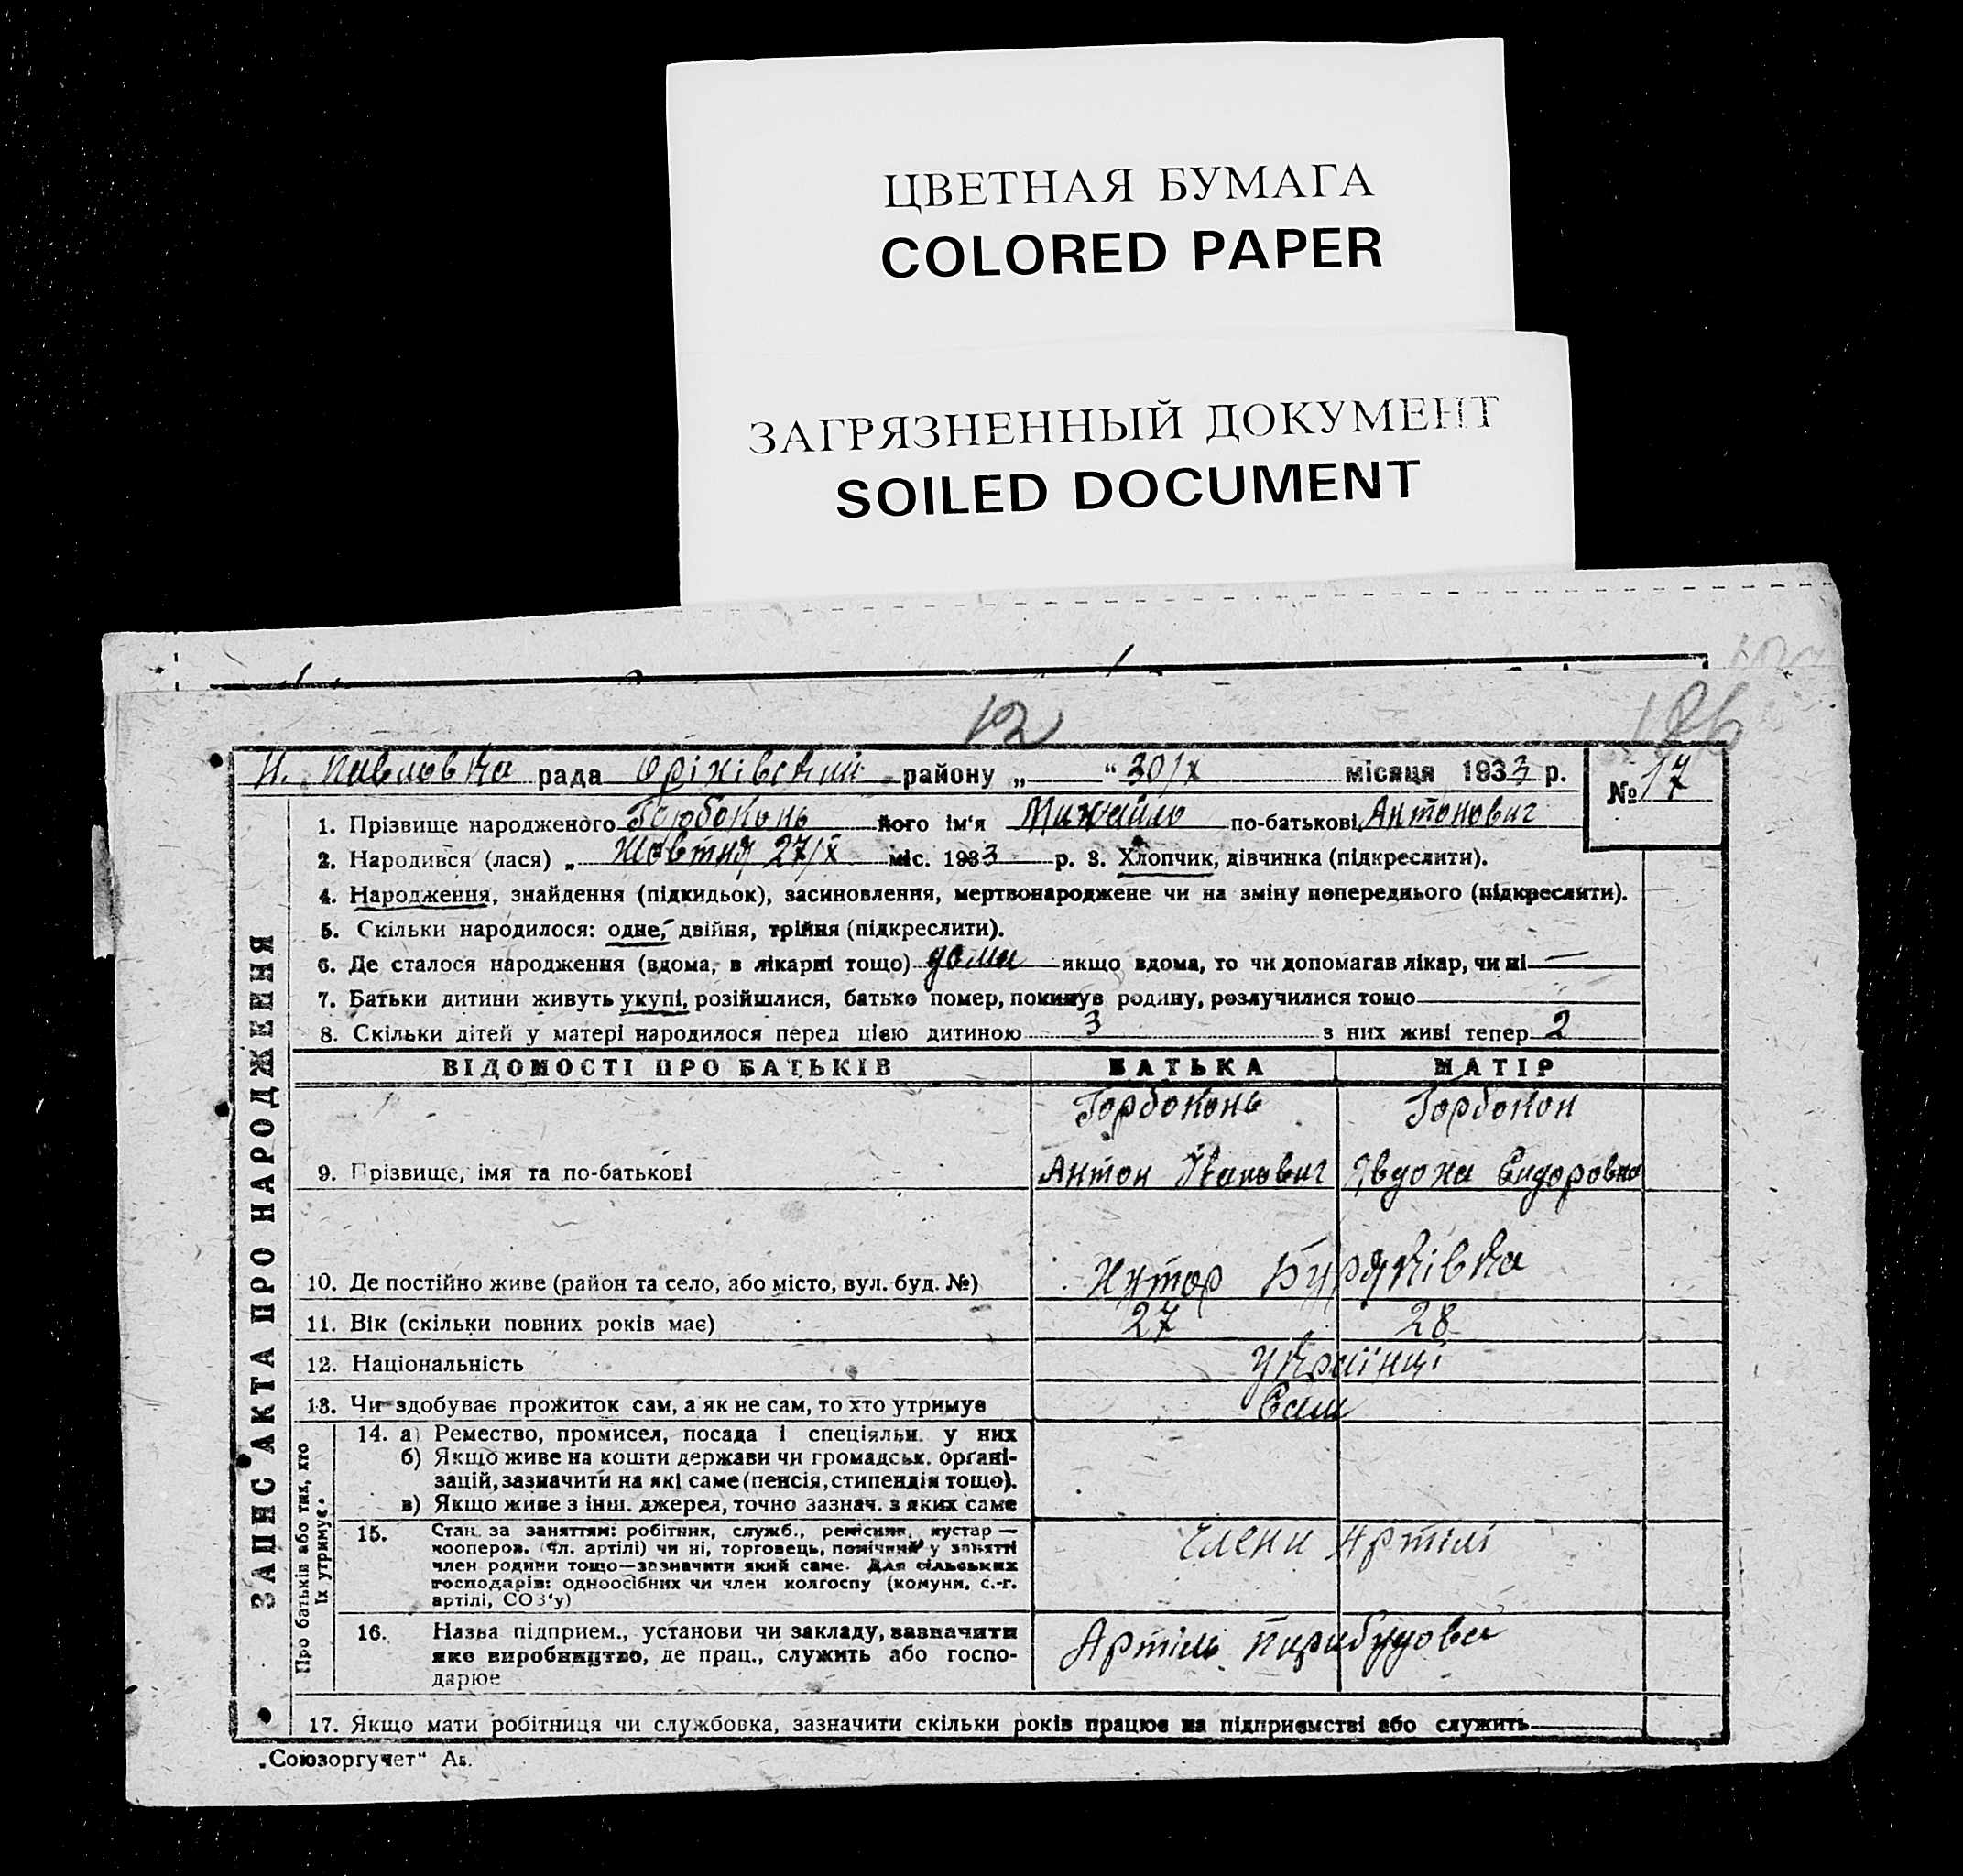 ЦВЕТНАЯ БУМАГА
COLORED PAPER
ЗАГРЯЗНЕННЫЙ ДОКУМЕНТ
SOILED DOCUMENT
12
186
Н. Павловка рада Оріхівський району „ “ 30/X місяця 1933 р. № 17
ЗАПИС АКТА ПРО НАРОДЖЕННЯ
1. Прізвище народженого Горбоконь його ім'я Михайло по-батькові Антонович
2. Народився (лася) „ Жовтня 27/X міс. 1933 р. 3. Хлопчик, дівчинка (підкреслити).
4. Народження, знайдення (підкидьок), засиновлення, мертвонароджене чи на зміну попереднього (підкреслити).
5. Скільки народилося: одне, двійня, трійня (підкреслити).
6. Де сталося народження (вдома, в лікарні тощо) дома якщо вдома, то чи допомагав лікар, чи ні —
7. Батьки дитини живуть укупі, розійшлися, батько помер, покинув родину, розлучилися тощо
8. Скільки дітей у матері народилося перед цією дитиною 3 з них живі тепер 2
ВІДОМОСТІ ПРО БАТЬКІВ БАТЬКА МАТІР
Горбоконь Горбокон
9. Прізвище, імя та по-батькові Антон Іванович Явдоха Сидоровна
10. Де постійно живе (район та село, або місто, вул. буд. №) Хутор Буряківка
11. Вік (скільки повних років має) 27 28
12. Національність Українці
13. Чи здобуває прожиток сам, а як не сам, то хто утримує Сам
Про батьків або тих, хто їх утримує.
14. а) Ремество, промисел, посада і спеціяльн. у них
б) Якщо живе на кошти держави чи громадськ. органі-
зацій, зазначити на які саме (пенсія, стипендія тощо).
в) Якщо живе з інш. джерел, точно зазнач. з яких саме
15. Стан за заняттям: робітник, служб., ремісник, кустар —
кооперов. (чл. артілі) чи ні, торговець, помічний у занятті
член родини тощо—зазначити який саме. Для сільських
господарів: одноосібних чи член колгоспу (комуни, с.-г.
артілі, СОЗ'у)
члени Артілі
16. Назва підприєм., установи чи закладу, зазначити
яке виробництво, де прац., служить або госпо-
дарює
Артіль
17. Якщо мати робітниця чи службовка, зазначити скільки років працює на підприємстві або служить
„Союзоргучет“